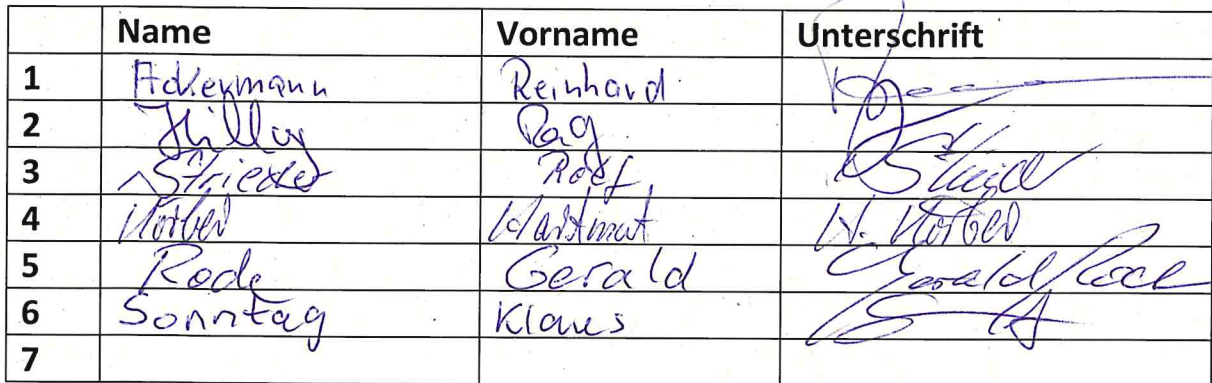 Name Vorname Unterschrift
1 Ackermann Reinhard
2
3 Strieder Rolf
4 Körber Hartmut H. Körber
5 Rode Gerald Gerald Rode
6 Sonntag Klaus
7